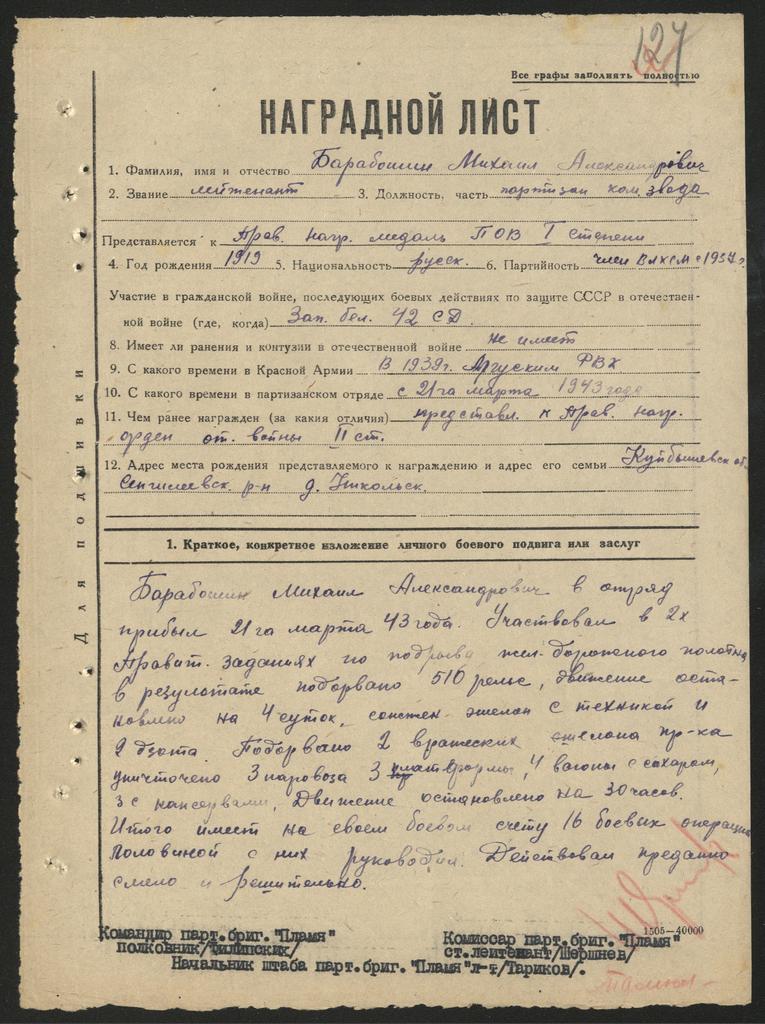 127
Все графы заполнять полностью
НАГРАДНОЙ ЛИСТ
1. Фамилия, имя и отчество Барабошин Михаил Александрович
2. Звание лейтенант 3. Должность, часть партизан ком. звода
Представляется к Прав. нагр. медаль ПОВ I степени
4. Год рождения 1919 5. Национальность русск. 6. Партийность член ВЛКСМ с 1937 г.
Участие в гражданской войне, последующих боевых действиях по защите СССР в отечествен-
ной войне (где, когда) Зап. бел. 42 СД.
8. Имеет ли ранения и контузии в отечественной войне не имеет
9. С какого времени в Красной Армии В 1939г. РВК
10. С какого времени в партизанском отряде с 21га марта 1943 года
11. Чем ранее награжден (за какия отличия) представл. к Прав. нагр.
орден от. войны II ст.
12. Адрес места рождения представляемого к награждению и адрес его семьи Куйбышевск об.
Сенгилеевск. р-н д.
Для подшивки
1. Краткое, конкретное изложение личного боевого подвига или заслуг
Барабошин Михаил Александрович в отряд
прибыл 21га марта 43 года. Участвовал в 2х
Правит. заданиях по подрыва жел-дорожного полотна
в результате подорвано 510 рельс, движение оста-
новлено на 4 суток, сожжен эшелон с техникой и
2 дзота. Подорвано 2 вражеских эшелона пр-ка
уничточено 3 паровоза 3 платформы, 4 вагоны с сахаром,
3 с консервами, Движение остановлено на 30 часов.
Итого имеет на своем боевом счету 16 боевых операций
половиной с них руководил. Действовал преданно
смело и решительно.
1505—40000
Командир парт.бриг. "Пламя"
полковник/Филипских/
Комиссар парт.бриг. "Пламя"
ст.лейтенант/Шершнев/
Начальник штаба парт.бриг. "Пламя" л-т/Тариков/.